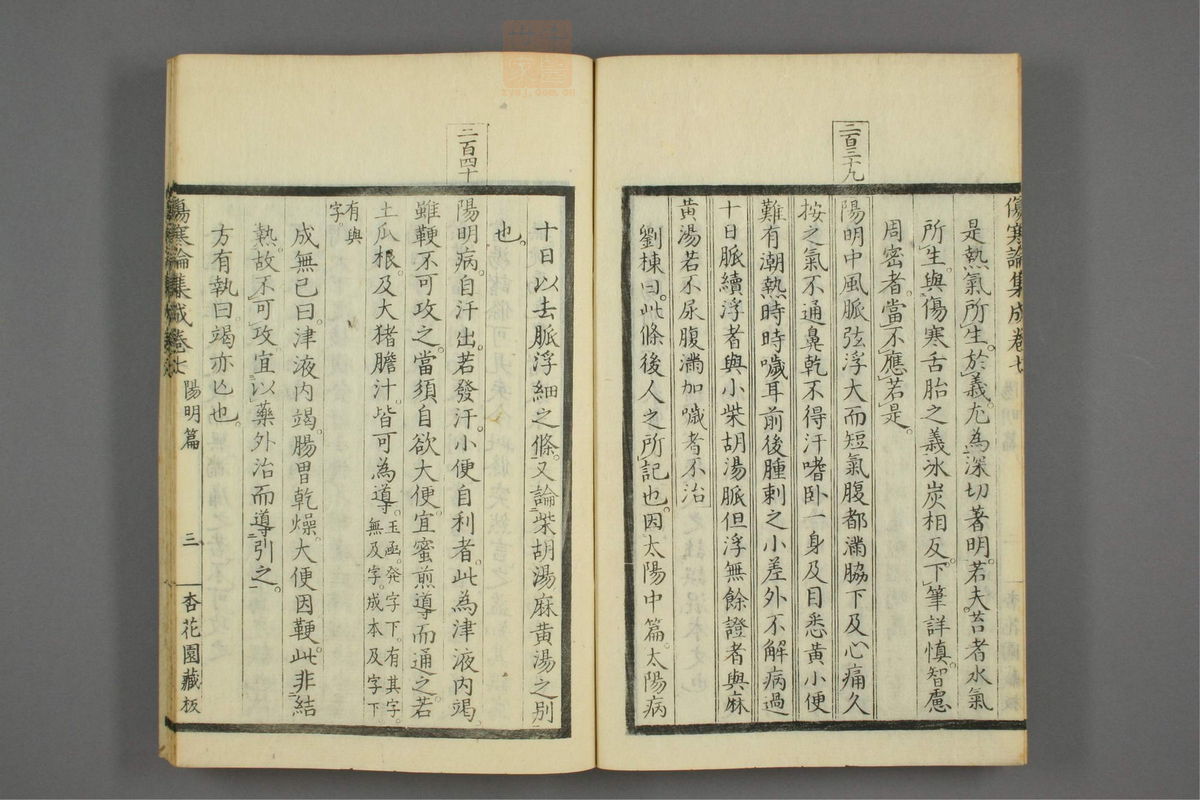 傷寒論集成卷七
是熱氣所生。於義尤為深切著明。若夫苔者水氣
所生。與傷寒舌胎之義氷炭相反。下筆詳慎。智慮
周密者。當不應若是。
二百三十九
陽明中風脈弦浮大而短氣腹都滿脇下及心痛久
按之氣不通鼻乾不得汗嗜卧一身及目悉黃小便
難有潮熱時時噦耳前後腫刺之小差外不解病過
十日脈續浮者與小柴胡湯脈但浮無餘證者與麻
黃湯若不尿腹滿加噦者不治
劉棟曰。此條後人之所記也。因太陽中篇。太陽病
十日以去脈浮細之條。又論柴胡湯麻黃湯之別
也。
二百四十
陽明病。自汗出。若發汗。小便自利者。此為津液內竭。
雖鞕不可攻之。當須自欲大便。宜蜜煎導而通之。若
土瓜根。及大猪膽汁。皆可為導。玉函。発字下。有其字。
無及字。成本及字下。
有與
字。
成無已曰。津液內竭。腸胃乾燥。大便因鞕。此非結
熱。故不可攻。宜以藥外治而導引之。
方有執曰。竭亦亡也。
傷寒論集成卷七
陽明篇
三
杏花園藏板